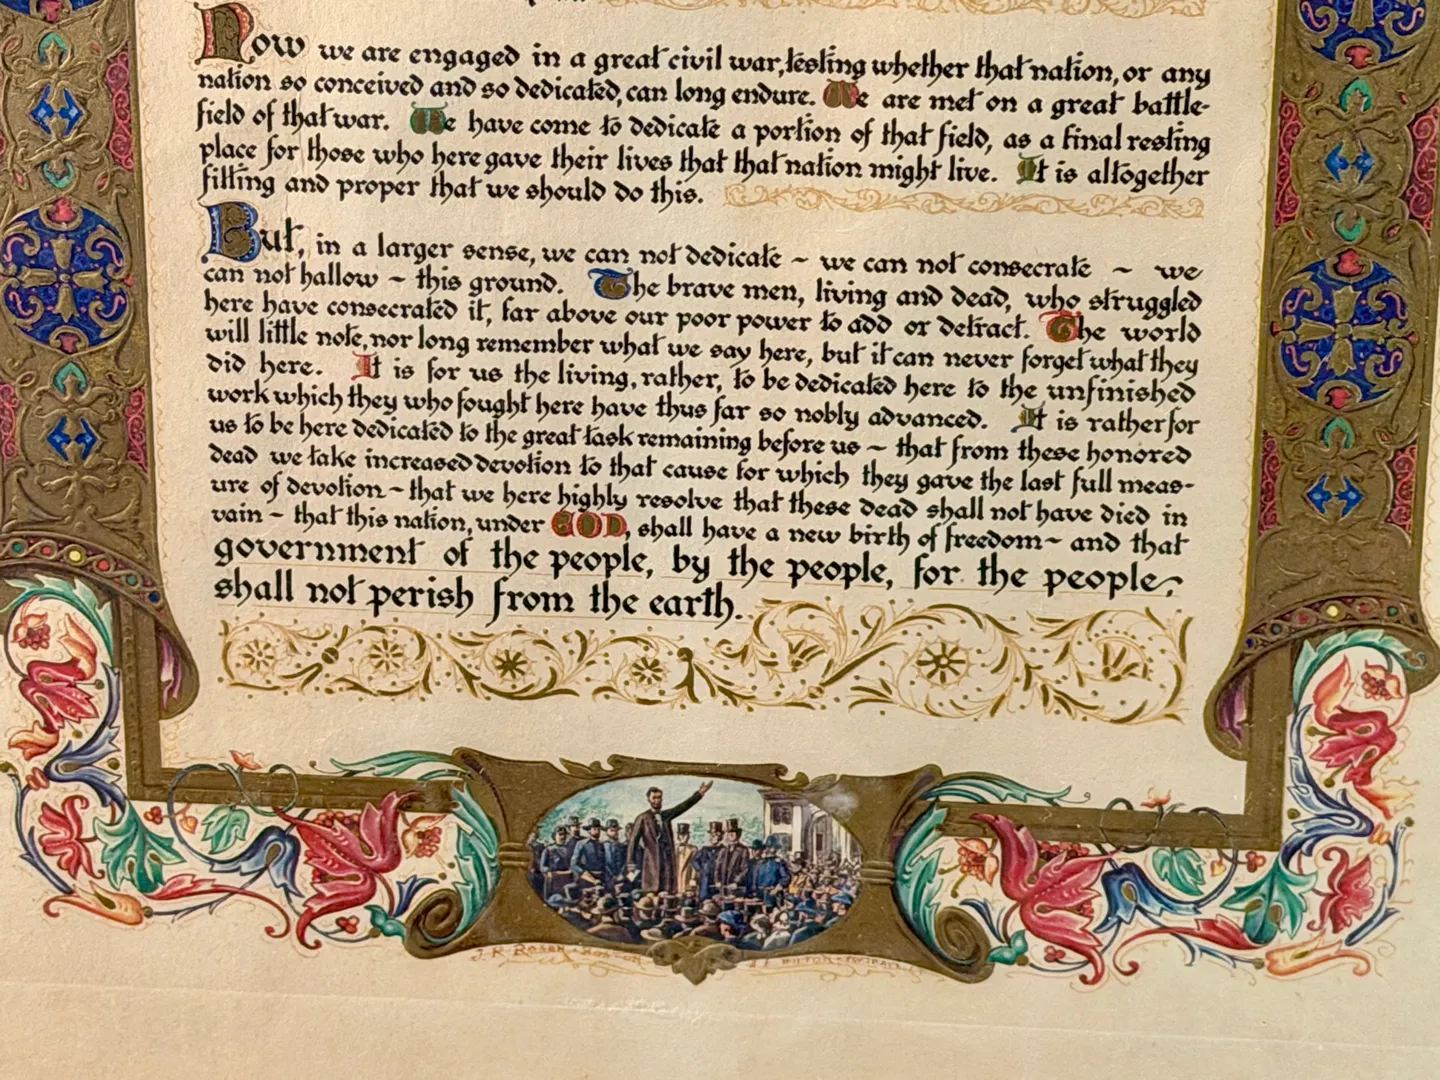 Now we are engaged in a great civil war, testing whether that nation, or any
nation so conceived and so dedicated, can long endure. We are met on a great battle-
field of that war. We have come to dedicate a portion of that field, as a final resting
place for those who here gave their lives that that nation might live. It is altogether
fitting and proper that we should do this.
But, in a larger sense, we can not dedicate ~ we can not consecrate ~ we
can not hallow ~ this ground. The brave men, living and dead, who struggled
here have consecrated it, far above our poor power to add or detract. The world
will little note, nor long remember what we say here, but it can never forget what they
did here. It is for us the living, rather, to be dedicated here to the unfinished
work which they who fought here have thus far so nobly advanced. It is rather for
us to be here dedicated to the great task remaining before us ~ that from these honored
dead we take increased devotion to that cause for which they gave the last full meas-
ure of devotion ~ that we here highly resolve that these dead shall not have died in
vain ~ that this nation, under GOD, shall have a new birth of freedom ~ and that
government of the people, by the people, for the people,
shall not perish from the earth.
J. R. ROSEN